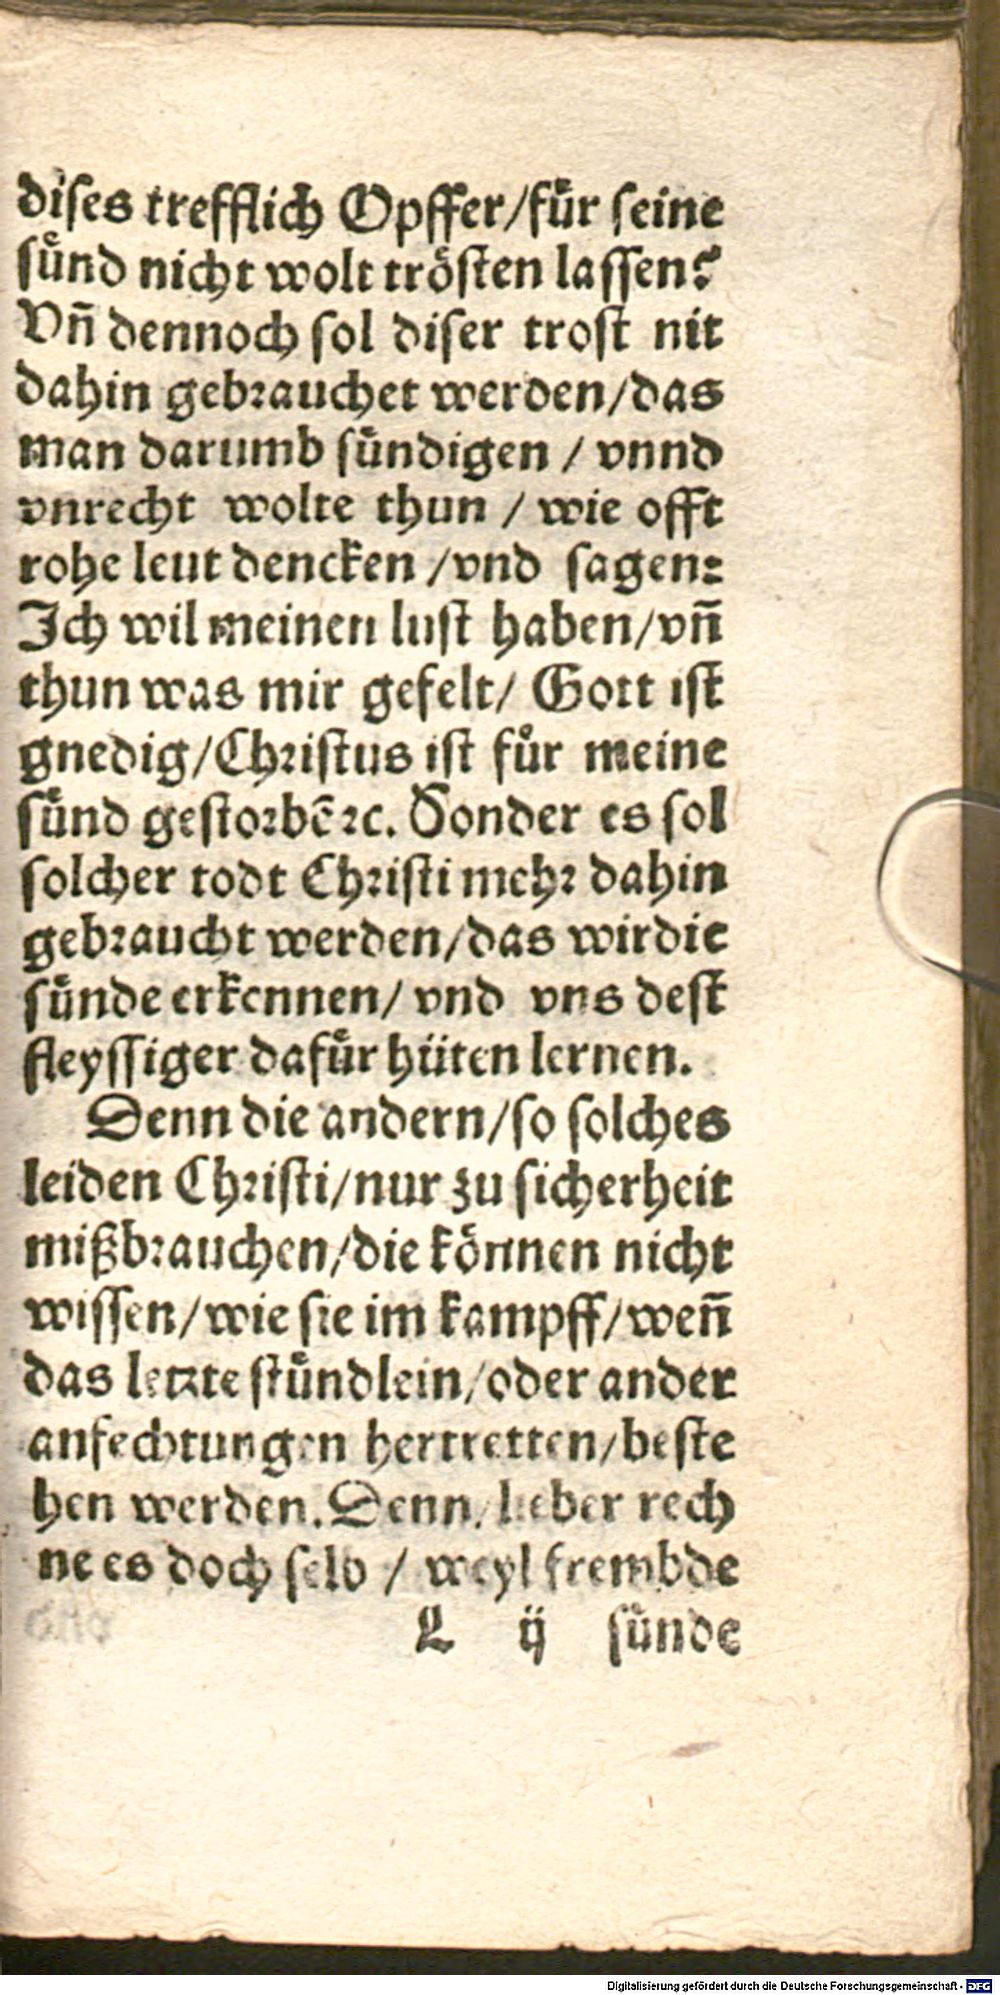 dises trefflich Opffer/fuͤr seine
suͤnd nicht wolt troͤsten lassen?
Vñ dennoch sol diser trost nit
dahin gebrauchet werden/das
man darumb suͤndigen / vnnd
vnrecht wolte thun / wie offt
rohe leut dencken /vnd sagen:
Ich wil meinen lust haben/vñ
thun was mir gefelt/ Gott ist
gnedig/Christus ist fuͤr meine
suͤnd gestorbẽ ꝛc. Sonder es sol
solcher todt Christi mehr dahin
gebraucht werden/das wir die
suͤnde erkennen/ vnd vns dest
fleyssiger dafuͤr huͤten lernen.
Denn die andern/so solches
leiden Christi/nur zu sicherheit
mißbrauchen/die koͤnnen nicht
wissen/wie sie im kampff/weñ
das letzte stuͤndlein/oder ander
anfechtungen hertretten/beste
hen werden. Denn/lieber rech
ne es doch selb / weyl frembde
L ij suͤnde
Digitalisierung gefördert durch die Deutsche Forschungsgemeinschaft - DFG